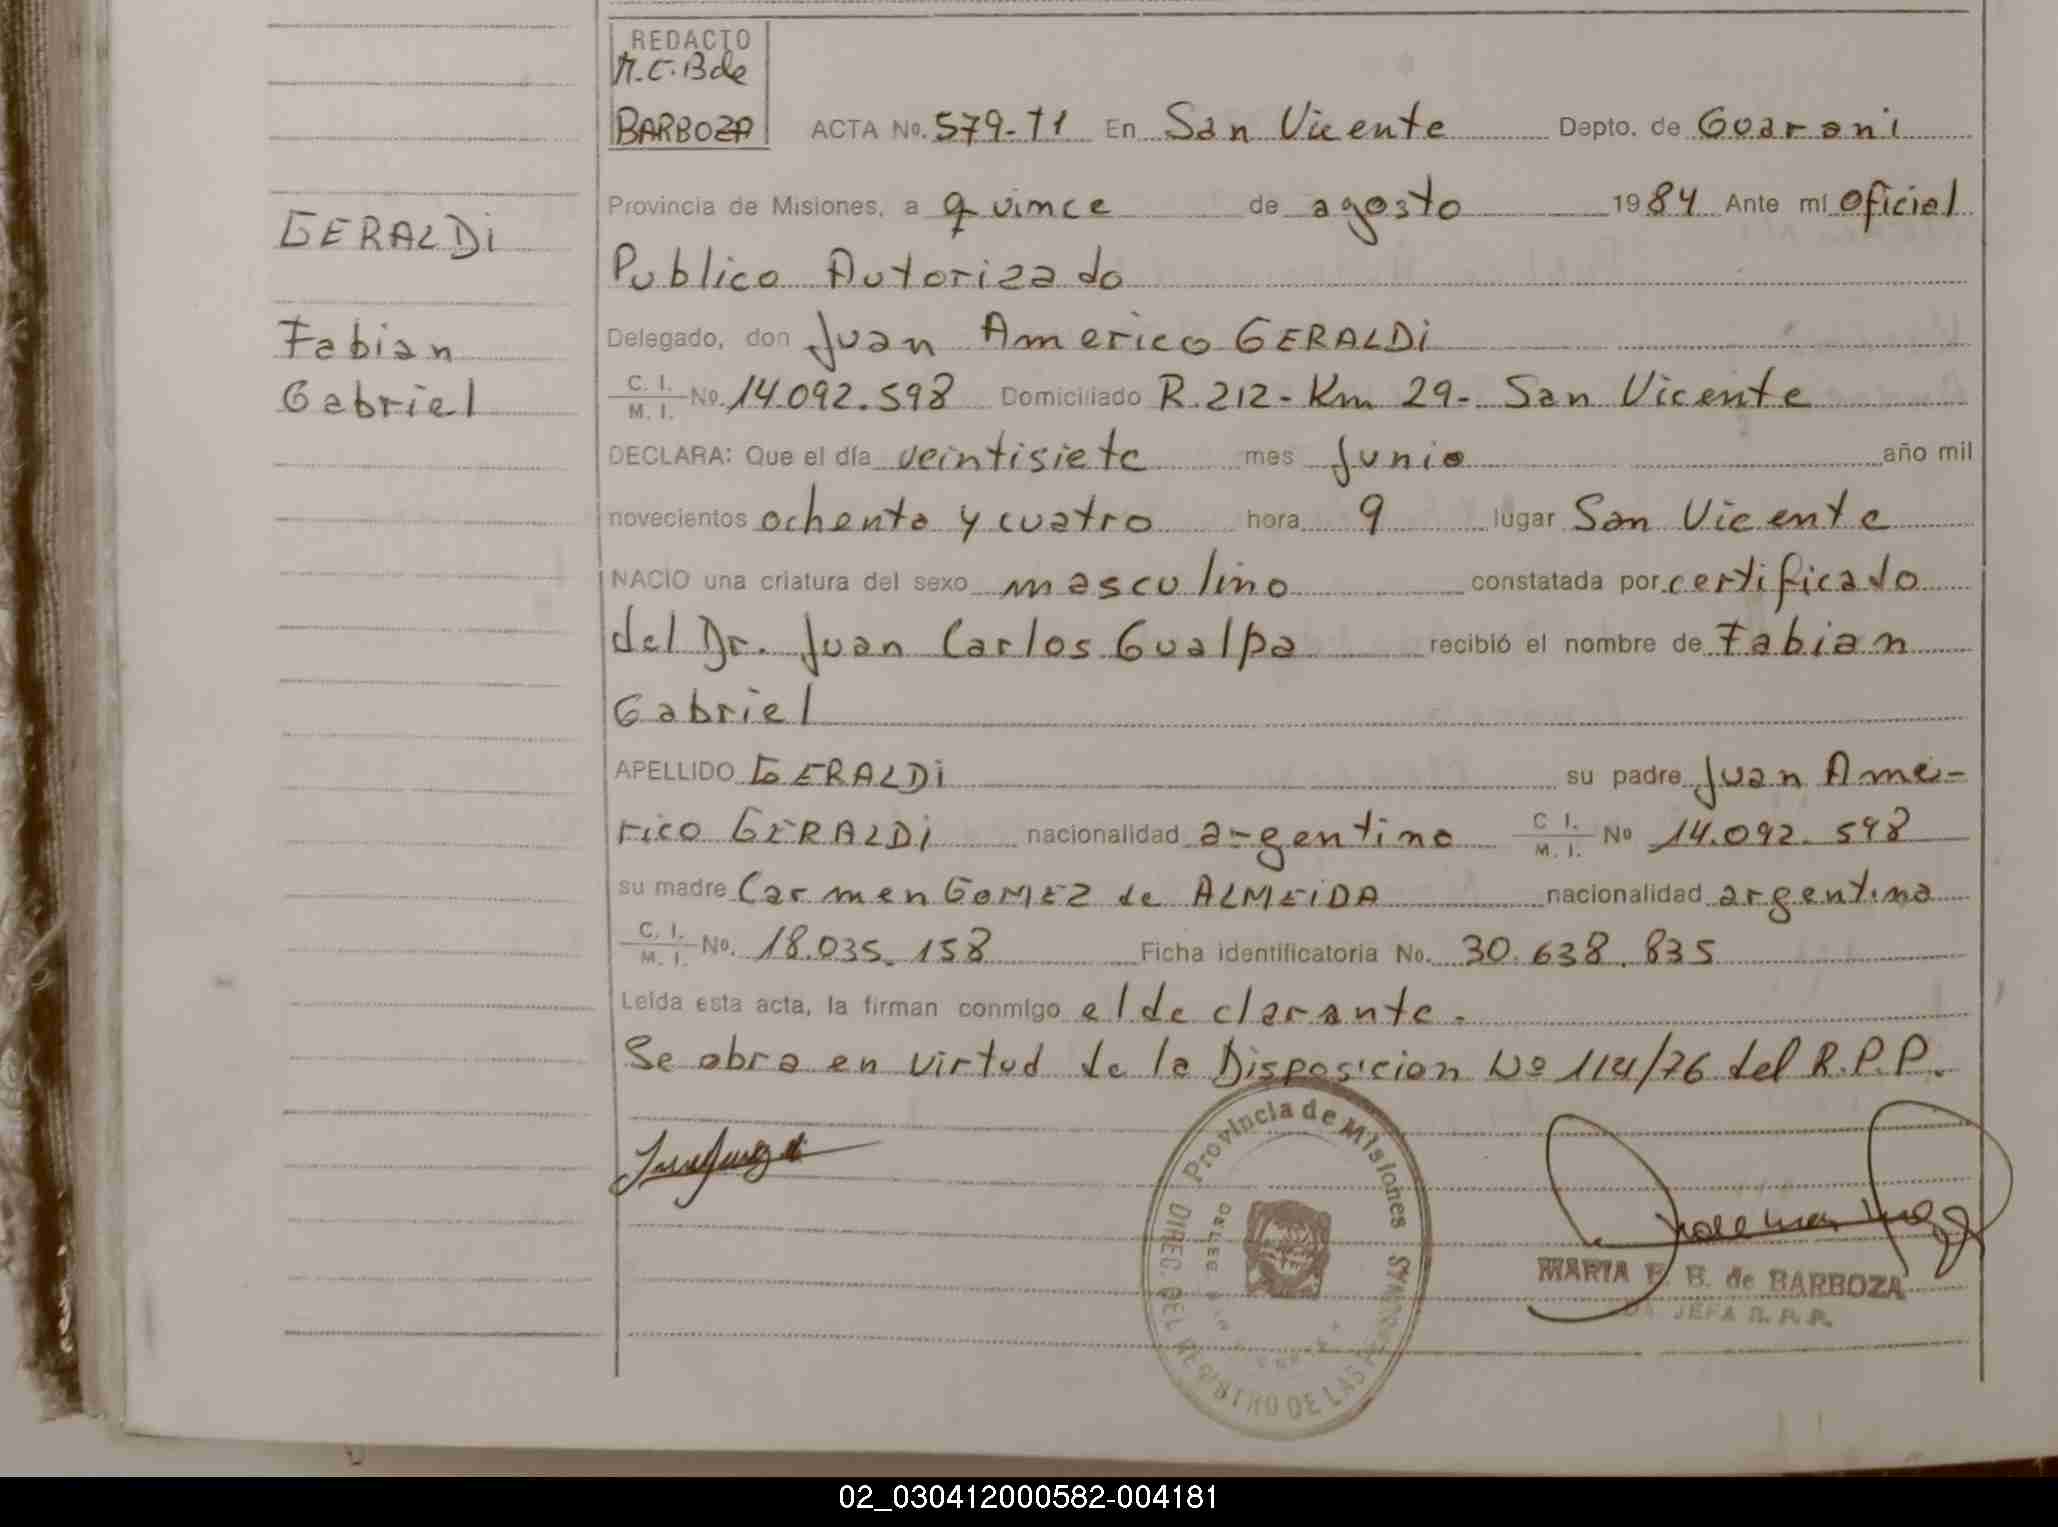 REDACTO
M.C.Bde
BARBOZA
ACTA No. 579-T1 En San Vicente Depto. de Guarani
Provincia de Misiones, a quince de agosto 1984 Ante mi Oficial
Publico Autorizado
Delegado, don Juan Americo GERALDi
C. I. M. I. No. 14.092.598 Domiciliado R.212-Km 29- San Vicente
DECLARA: Que el día veintisiete mes Junio año mil
novecientos ochenta y cuatro hora 9 lugar San Vicente
NACIO una criatura del sexo masculino constatada por certificado
del Dr. Juan Carlos Gualpa recibió el nombre de Fabian
Gabriel
APELLIDO GERALDi su padre Juan Ame-
rico GERALDi nacionalidad argentino C I. M. I. No 14.092.598
su madre Carmen GOMEZ de ALMEiDA nacionalidad argentina
C. I. M. I. No. 18.035.158 Ficha identificatoria No. 30.638.835
Leída esta acta, la firman conmigo el declarante.
Se obra en virtud de la Disposicion Nº 114/76 del R.P.P.
GERALDi
Fabian
Gabriel
Provincia de Misiones
DIREC. DEL REGISTRO DE LAS PERSONAS
MARIA E. B. de BARBOZA
JEFA R. P. P.
02_030412000582-004181